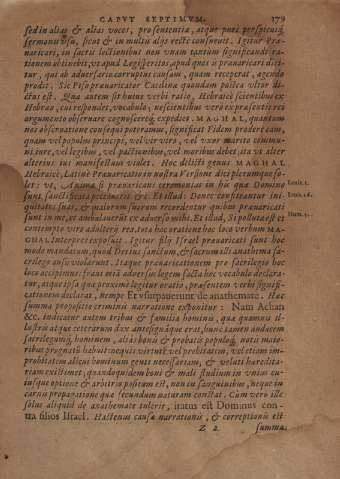 CAPVT SEPTIMVM. 179
sed in alias & alias voces, pro sententia, atque puri perspicuiq́;
sermonis usu, sicut & in multis alijs recte consuevit. Igitur Præ-
uaricari, in sacris lectionibus non unam tantum significandi ra-
tionem obtinebit, ut apud Legisperitos, apud quos is prauaricari dici-
tur, qui ab aduersario corruptus causam, quam receperat, agendo
prodit. Sic Piso prauaricator Catilina quondam publice vltor di-
ctus est. Qua autem sit huius verbi ratio, Hebraice scientibus ex
Hebræo, cui respondet, vocabulo, nescientibus vero ex præsentis rei
argumento obseruare cognoscereq́; expedit. MAGHAL, quantum
nos obseruatione consequi poteramus, significat Fidem prodere eam,
quam vel populus principi, vel vir viro, vel vxor marito commu-
ni iure, vel legibus, vel pactionibus, vel moribus debet, ita vt alter
alterius ius manifestum violet. Hoc delicti genus MAGHAL
Hebraice, Latine Præuaricatio in nostra Versione dici plerumque so-
let: vt, Anima si præuaricatis ceremonias in his quæ Domino
sunt sanctificata peccauerit &c. Et illud: Donec confiteantur ini-
quitates suas, & maiorum suorum recordentur quibus præuaricati
sunt in me, et ambulauerũt ex aduerso mihi. Et illud, Si polluta est et
contempto viro adultera rea. tota hac oratione hoc loco verbum MA-
GHAL Interpres exposuit. Igitur filij Israel præuaricati sunt hoc
modo mandatum, quod Deo ius sanctum, & sacrum illi anathema sa-
crilego ausu violarunt. Itaque præuaricationem pro sacrilegio hoc
loco accipimus: fraus etiã aduersus legem facta hoc vocabulo declara-
tur, atque ipsa quæ proxime legitur oratio, præsentem verbi signifi-
cationem declarat, nempe Et vsurpauerunt de anathemate. Hac
summa propositio criminis narratione exponitur: Nam Achan
&c. indicatur autem tribus & familia hominis, qua quamuis il-
lustris atque ceterarum dux antesignaq́ue erat, hunc tamen audacem
sacrilegumq́; hominem, alias bonis & probatis populoq́; notis maio-
ribus prognatũ habuit: neq́uis virtutẽ, vel probitatem, vel etiam im-
probitatem alicui hominum genti necessariam, & veluti hæredita-
riam existimet, quandoquidem boni & mali studium in vnius cu-
iusque optione & arbitrio positum est, non in sanguinibus, neque in
carnis propagatione quæ secundum naturam constat. Cum vero ille
solus aliquid de anathemate tulerit, iratus est Dominus con-
tra filios Israel. Hactenus causa narrationis, & correptionis est
Z 2 summa.
Leuit. 5.
Leuit. 26.
Num. 5.